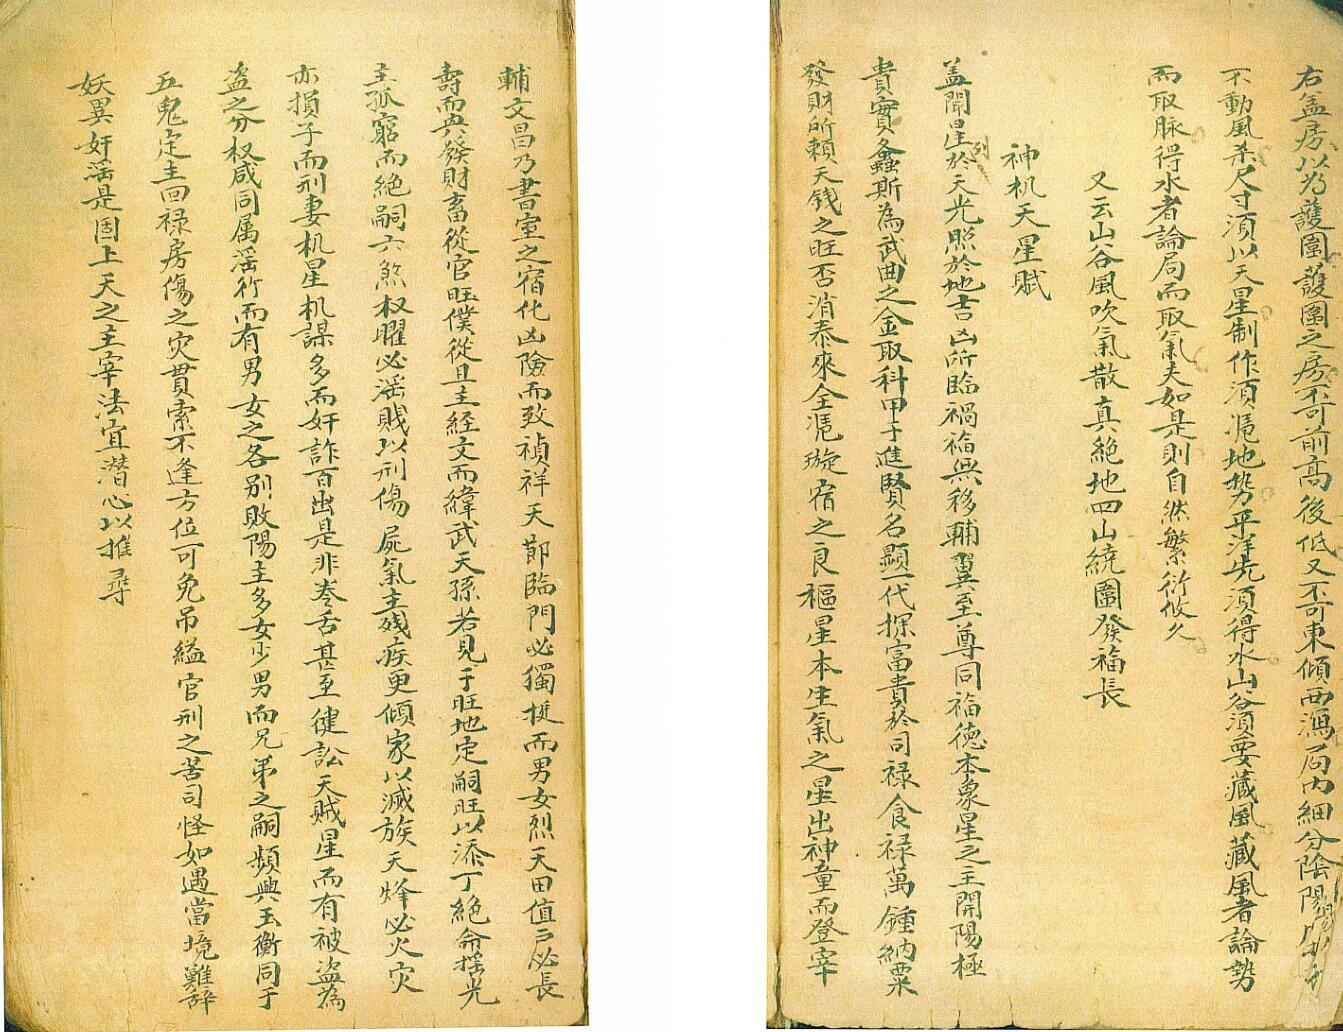 右盖房以為護圍護圍之房不可前高後低又不可東傾西漏局内細分陰陽
不動風来尺寸須以天星制作須凴地势平洋先須得水山谷須要藏風藏風者論势
而取脉得水者論局而取氣夫如是則自然繁衍攸久
又云山谷風吹氣散真絶地四山繞圍發福長
神机天星賦
盖聞星列於天光照於地吉凶所臨禍福無移輔翼至尊同福德本象星之主開陽極
貴實螽斯為武曲之金取科甲于進賢名顯一代探富貴於司禄食禄萬鍾納粟
發財所賴天錢之旺否消泰來全凴璇宿之良樞星本生氣之星出神童而登宰
輔文昌乃書室之宿化凶險而致禎祥天節臨門必獨挺而男女烈天田值户必長
壽而興發財畜從官旺僕從且主経文而緯武天孫若見于旺地定嗣旺以添丁絶命揺光
主孤窮而絶嗣六煞权曜必滛賤以刑傷屍氣主殘疾更傾家以滅族天烽必火灾
亦損子而刑妻机星机謀多而奸詐百出是非卷舌甚至健訟天賊星而有被盗為
盗之分权咸同属滛行而有男女之各别敗陽主多女少男而兄弟之嗣頻興玉衡同于
五鬼定主回禄房傷之灾貫索不逢方位可免吊縊官刑之苦司怪如遇當境難辞
妖異奸滛是固上天之主宰法宜潜心以推尋